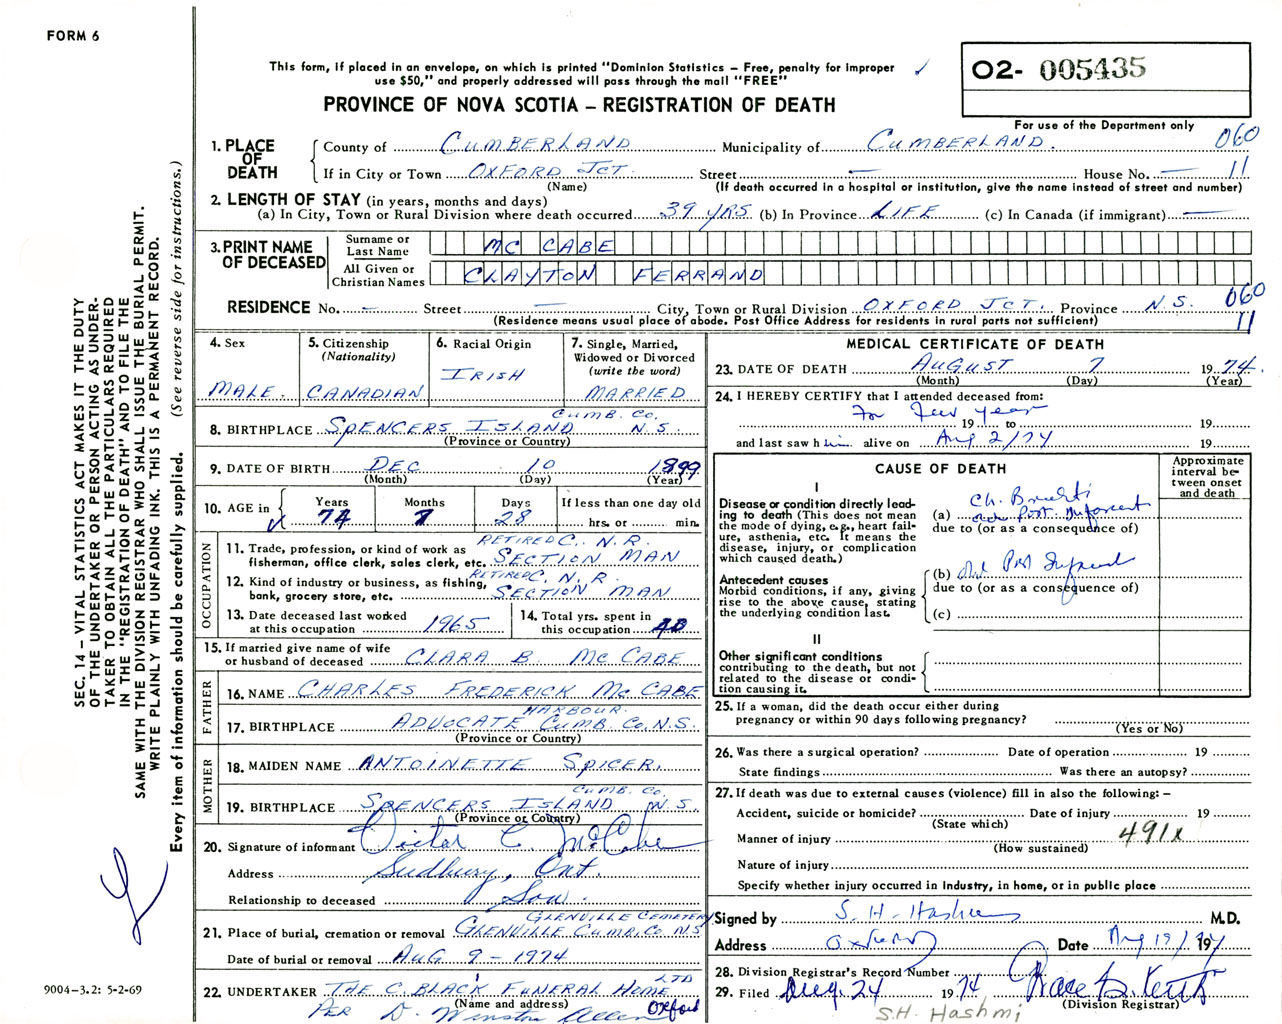 FORM 6
This form, if placed in an envelope, on which is printed "Dominion Statistics – Free, penalty for improper
use $50," and properly addressed will pass through the mail "FREE"
O2- 005435
PROVINCE OF NOVA SCOTIA – REGISTRATION OF DEATH
For use of the Department only
1. PLACE OF DEATH
County of CUMBERLAND Municipality of CUMBERLAND. 060
If in City or Town OXFORD JCT. Street — House No. — 11
(Name) (If death occurred in a hospital or institution, give the name instead of street and number)
2. LENGTH OF STAY (in years, months and days)
(a) In City, Town or Rural Division where death occurred 39 YRS (b) In Province LIFE (c) In Canada (if immigrant) —
3. PRINT NAME OF DECEASED
Surname or Last Name MC CABE
All Given or Christian Names CLAYTON FERRAND
RESIDENCE No. – Street — City, Town or Rural Division OXFORD JCT. Province N.S. 060
(Residence means usual place of abode. Post Office Address for residents in rural parts not sufficient) 11
4. Sex
MALE.
5. Citizenship
(Nationality)
CANADIAN
6. Racial Origin
IRISH
7. Single, Married,
Widowed or Divorced
(write the word)
MARRIED
CUMB. CO.
8. BIRTHPLACE SPENCERS ISLAND N.S.
(Province or Country)
9. DATE OF BIRTH DEC 10 1899
(Month) (Day) (Year)
10. AGE in
Years Months Days If less than one day old
74 7 28 hrs. or min.
OCCUPATION
RETIRED C. N. R.
11. Trade, profession, or kind of work as
fisherman, office clerk, sales clerk, etc. SECTION MAN
12. Kind of industry or business, as fishing, RETIRED C. N. R.
bank, grocery store, etc. SECTION MAN
13. Date deceased last worked
at this occupation 1965
14. Total yrs. spent in
this occupation
15. If married give name of wife
or husband of deceased CLARA B. MC CABE
FATHER
16. NAME CHARLES FREDERICK MC CABE
HARBOUR.
17. BIRTHPLACE ADVOCATE CUMB. CO. N.S.
(Province or Country)
MOTHER
18. MAIDEN NAME ANTOINETTE SPICER.
CUMB. CO.
19. BIRTHPLACE SPENCERS ISLAND N.S.
(Province or Country)
20. Signature of informant Victor C. McCabe
Address Sudbury, Ont.
Relationship to deceased Son.
GLENVILLE CEMETERY
21. Place of burial, cremation or removal GLENVILLE CUMB. CO. N.S
Date of burial or removal AUG 9 - 1974
LTD
22. UNDERTAKER THE C. BLACK FUNERAL HOME
(Name and address) Oxford
PER D. Winston Allen
MEDICAL CERTIFICATE OF DEATH
23. DATE OF DEATH AUGUST 7 1974.
(Month) (Day) (Year)
24. I HEREBY CERTIFY that I attended deceased from:
For few year
19 to 19
and last saw him alive on Aug 2/74 19
CAUSE OF DEATH
Approximate
interval be-
tween onset
and death
I
Disease or condition directly lead-
ing to death (This does not
mean the mode of dying, e.g., heart fail-
ure, asthenia, etc. It means the
disease, injury, or complication
which caused death.)
(a) Ch.
due to (or as a consequence of)
Antecedent causes
Morbid conditions, if any, giving
rise to the above cause, stating
the underlying condition last.
(b)
due to (or as a consequence of)
(c)
II
Other significant conditions
contributing to the death, but not
related to the disease or condi-
tion causing it.
25. If a woman, did the death occur either during
pregnancy or within 90 days following pregnancy?
(Yes or No)
26. Was there a surgical operation? Date of operation 19
State findings Was there an autopsy?
27. If death was due to external causes (violence) fill in also the following: –
Accident, suicide or homicide? Date of injury 19
(State which)
491x
Manner of injury
(How sustained)
Nature of injury
Specify whether injury occurred in Industry, in home, or in public place
Signed by S. H. Hashmi M.D.
Address Oxford Date Aug 19/ 1974
28. Division Registrar's Record Number
29. Filed Aug. 24 1974
(Division Registrar)
S.H. Hashmi
SEC. 14 – VITAL STATISTICS ACT MAKES IT THE DUTY
OF THE UNDERTAKER OR PERSON ACTING AS UNDER-
TAKER TO OBTAIN ALL THE PARTICULARS REQUIRED
IN THE "REGISTRATION OF DEATH" AND TO FILE THE
SAME WITH THE DIVISION REGISTRAR WHO SHALL ISSUE THE BURIAL PERMIT.
WRITE PLAINLY WITH UNFADING INK. THIS IS A PERMANENT RECORD.
Every item of information should be carefully supplied. (See reverse side for instructions.)
9004–3.2: 5-2-69